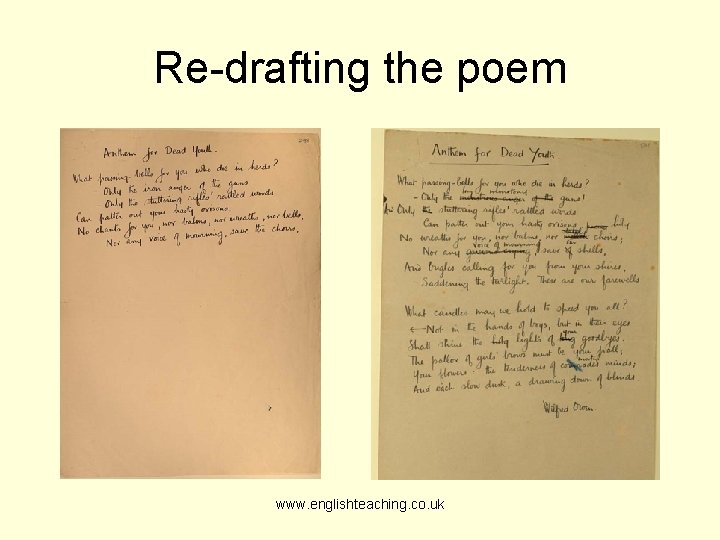 Re-drafting the poem
Anthem for Dead Youth.
What passing-bells for you who die in herds?
Only the iron anger of the guns
Only the stuttering rifles' rattled words
Can patter out your hasty orisons.
No chants for you, nor balms, nor wreaths, nor bells,
Nor any voice of mourning, save the choirs,
Anthem for Dead Youth
What passing-bells for you who die in herds?
- Only the monstrous anger of the guns!
Only the stuttering rifles' rattled words
Can patter out your hasty orisons
No wreaths for you, nor balms, nor choirs;
voice of mourning
Nor any save of shells,
And bugles calling for you from your shires,
Saddening the twilight. These are our farewells
What candles may we hold to speed you all?
Not in the hands of boys, but in their eyes
Shall shine the holy lights of goodbyes.
The pallor of girls' brows must be your pall;
Your flowers the tenderness of comrades' minds;
And each slow dusk, a drawing down of blinds
Wilfred Owen
www.englishteaching.co.uk